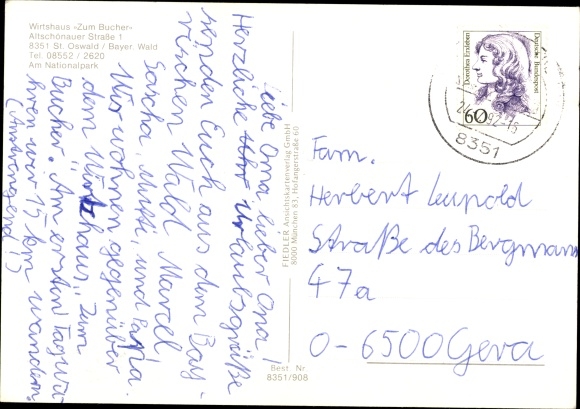 Wirtshaus »Zum Bucher«
Altschönauer Straße 1
8351 St. Oswald / Bayer. Wald
Tel. 08552 / 2620
Am Nationalpark
Liebe Oma lieber Opa!
Herzliche Urlaubsgrüße
senden Euch aus dem Bay-
rischen Wald Marcel,
Sascha, Mutti, und Papa.
Wir wohnen gegenüber
dem Wirtshaus „Zum
Bucher". Am ersten Tag wa-
hren wir 15 km wandern.
(Anstrengend!)
FIEDLER Ansichtskartenverlag GmbH
8000 München 63, Hufangerstraße 60
Best. Nr.
8351/908
Dorothea Erxleben
Deutsche Bundespost
60
8351
Fam.
Herbert Leupold
Straße des Bergmann
47a
O-6500 Gera